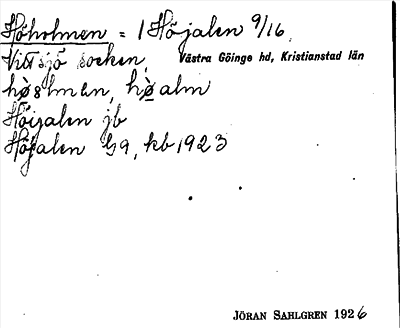 Höholmen = 1 Höjalen 9/16,
Vittsjö socken, Västra Göinge hd, Kristianstad län
Höijalen jb
Höjalen G9, kb 1923
JÖRAN SAHLGREN 1926